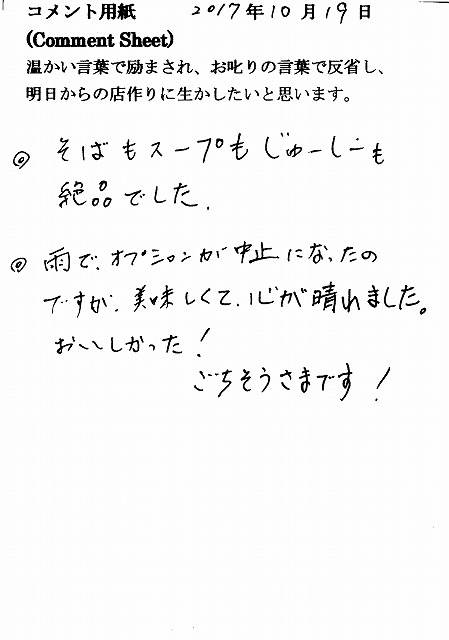 コメント用紙 2017年10月19日
(Comment Sheet)
温かい言葉で励まされ、お叱りの言葉で反省し、
明日からの店作りに生かしたいと思います。
◎ そばもスープもじゅーしーも
絶品でした.
◎ 雨で、オプションが中止になったの
ですが、美味しくて、心が晴れました。
おいしかった!
ごちそうさまです!